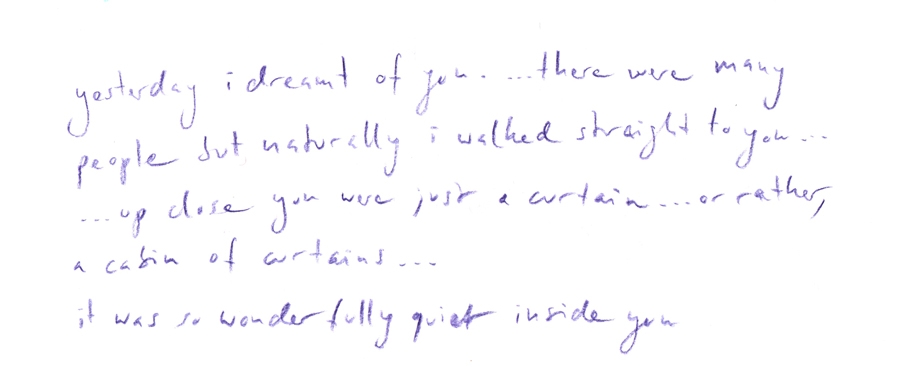 yesterday i dreamt of you. ...there were many
people but naturally i walked straight to you...
...up close you were just a curtain...or rather,
a cabin of curtains...
it was so wonderfully quiet inside you